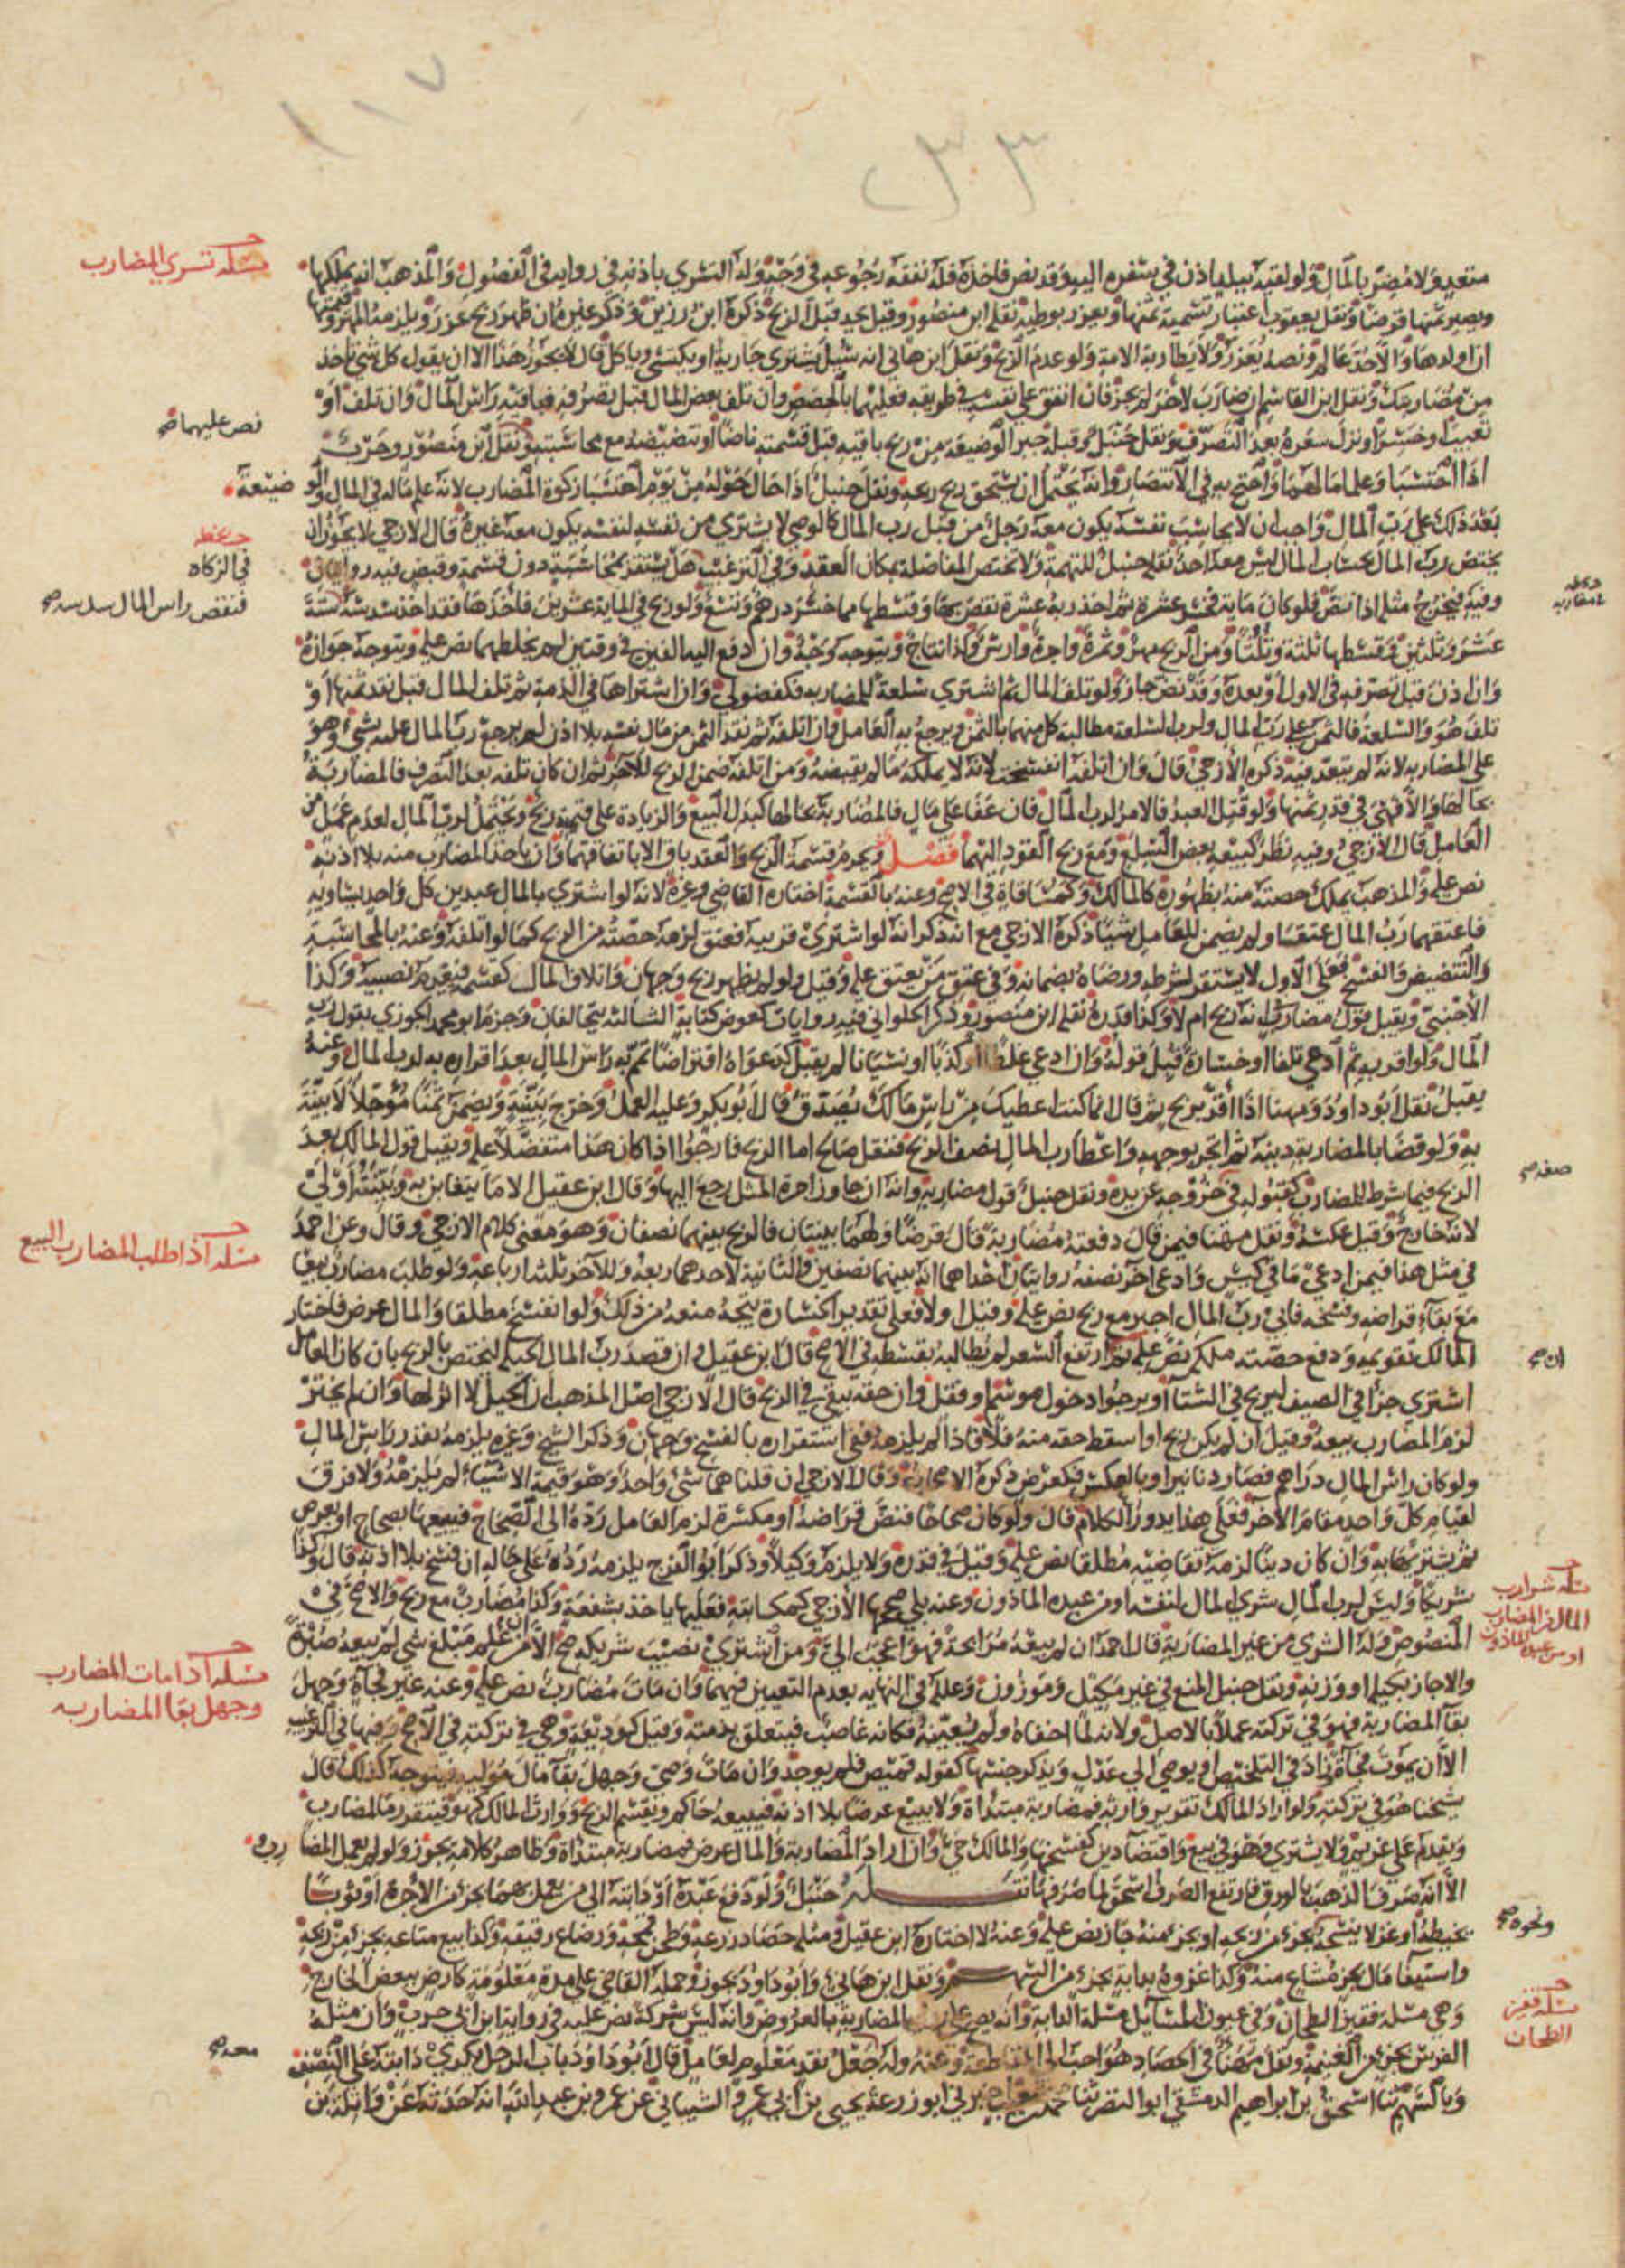 ١١٧
٢٣٣
مسئلة تسري المضارب
متعد ولا مضر بالمال ولو لقيه ببلد اذن في سفره اليه وقد نض فاخذه فله نفقة رجوعه في وجه وله التسري باذنه في رواية في الفصول والمذهب انه يملكها
ويصير ثمنها قرضا ونقل يعقوب اعتبار تسمية ثمنها ويعزر بوطئه نقله ابن منصور وقيل يحد قبل الربح ذكره ابن رزين وذكر غيره ان ظهر ربح عزر ويلزمه المهر وقيمتها
ان اولدها والا حد عالم ونصه يعزر ولا يطا رب الامة ولو عدم الربح ونقل ابن هاني انه سئل يشتري جارية او يكسى وياكل قال لا يجوز هذا الا ان يقول كل شي تاخذ
من مضاربتك ونقل ابن القاسم ان ضارب لاخر لم يجز فان انفق على نفسه في طريقه فعليهما بالحصص وان تلف بعض المال قبل تصرفه فباقيه راس المال وان تلف او
تعيب او خسر او نزل سعره بعد التصرف ونقل حنبل وقبله جبر الوضيعة من ربح باقيه قبل قسمته ناضا او تنضيضه مع محاسبته ونقل ابن منصور وحرب
نص عليهما صح
اذا احتسبا وعلما مالهما واحتج به في الانتصار وانه يحتمل ان يستحق ربح ربحه ونقل حنبل اذا حال حوله من يوم احتسبا زكوة المضارب لانه علم ماله في المال والوضيعة
بعد ذلك على رب المال واحب ان لا يحاسب نفسه يكون معه رجل من قبل رب المال كالوصي لا يشتري من نفسه لنفسه يكون معه غيره قال الازجي لا يجوز ان
في الزكاه
يختص رب المال بحساب المال ليس معه احد نقله حنبل للتهمة ولا تختص المفاضلة بمكان العقد وفي الترغيب هل تستقر بمحاسبة دون قسمة وقبض فيه روايتان
فنقص راس المال سدسه صح
وفيه يخرج مثله اذا نض فلو كان ماية فخسر عشرة ثم اخذ ربه عشرة نقص بها وقسطها مما خسر درهم وتسع ولو ربح في الماية عشرين فاخذها فقد اخذ سدسه ستة
عشر وثلثين وقسطها ثلثة وثلثا ومن الربح مهر وثمرة واجرة وارش وكذا نتاج ويتوجه وجه وان دفع اليه الفين في وقتين لم يخلطهما نص عليه ويتوجه جوازه
وان اذن قبل تصرفه في الاول او بعده وقد نض جاز ولو تلف المال ثم اشترى سلعة للمضاربه فكفضولي وان اشتراها في الذمة ثم تلف المال قبل نقد ثمنها او
تلف هو والسلعة فالثمن على رب المال ولرب السلعة مطالبة كل منهما بالثمن ويرجع به العامل وان اتلفه ثم نقد الثمن من مال نفسه بلا اذن لم يرجع رب المال عليه بشي وهو
على المضاربه لانه لم يتعد فيه ذكره الازجي قال وان اتلفه انفسخت لانه لا يملكه ما لم يقبضه ومن اتلفه ضمن الربح للاخر ثم ان كان تلفه بعد التصرف فالمضاربة
بحالها والا فهي في قدر ثمنها ولو قتل العبد فالامر لرب المال فان عفا على مال فالمضاربة بحالها كبدل المبيع والزيادة على قيمته ربح ويحتمل لرب المال لعدم عمل من
العامل قال الازجي وفيه نظر كبيعه بعض السلع ومع ربح القود اليهما فصل ويحرم قسمة الربح والعقد باق الا باتفاقهما وان ياخذ المضارب منه بلا اذنه
نص عليه والمذهب يملك حصته منه بظهوره كالمالك وكمساقاة في الاصح وعنه بالقسمة اختاره القاضي وغيره لانه لو اشترى بالمال عبدين كل واحد يساويه
فاعتقهما رب المال عتقا ولم يضمن للعامل شيا ذكره الازجي مع انه ذكر انه لو اشترى قريبه فعتق لزمه حصته من الربح كما لو اتلفه وعنه بالمحاسبة
والتنضيض والفسخ فعلى الاول لا يستقر لشرطه ورضاه بضمانه وفي عتق من يعتق عليه وقيل ولو لم يظهر ربح وجهان واتلاف المالك كقسمه فيغرم نصيبه وكذا
الاجنبي ويقبل قول مضارب انه ربح ام لا وكذا قدره نقله ابن منصور وذكر الحلواني فيه روايات كعوض كتابة الثالثة يتحالفان وجزم ابو محمد الجوزي بقول رب
المال ولو اقر به ثم ادعى تلفا او خسارة قبل قوله وان ادعى غلطا او كذبا او نسيانا لم يقبل كدعواه اقتراضا تمم به راس المال بعد اقراره به لرب المال وعنه
يقبل نقل ابو داود ومهنا اذا اقر بربح ثم قال انما كنت اعطيك من راس مالك يصدق قال ابو بكر وعليه العمل وخرج ببينة ويضمن ثمنا مؤجلا لا بينة
به ولو قضا بالمضاربة دينه ثم اتجر بوجهه واعطا رب المال نصف الربح فنقل صالح اما الربح فارجوا اذا كان هذا متفضلا عليه ويقبل قول المالك بعد
صفه صح
الربح فيما شرط للمضارب كقبوله في خروجه عن يده ونقل حنبل قول مضاربه وانه ان جاوز اجرة المثل رجع اليها وقال ابن عقيل الا ما يتغابن به وبينته اولى
لانه خارج وقيل عكسه ونقل مهنا فيمن قال دفعته مضاربة قال قرضا ولهما بينتان فالربح بينهما نصفان وهو معنى كلام الازجي وقال وعن احمد
مسئلة اذا طلب المضارب البيع
في مثل هذا فيمن ادعى ما في كيس وادعى اخر نصفه روايتان احداهما انه بينهما نصفين والثانية لاحدهما ربعه وللاخر ثلثة ارباعه ولو طلب مضارب بيعا
مع بقاء قراضه وفسخه فابى رب المال اجبر مع ربح نص عليه وقيل اولا فعلى تقدير الخسارة يتجه منعه من ذلك ولو انفسخ مطلقا والمال عرض فاختار
المالك تقويمه ودفع حصته ملكه نص عليه ثم ارتفع السعر لم يطالبه بقسطه في الاصح قال ابن عقيل وان قصد رب المال الحيلة ليختص بالربح بان كان العامل
ان صح
اشترى خزا في الصيف ليربح في الشتا او يرجوا دخول موسم او قفل وان حقه يبقى في الربح قال الازجي اصل المذهب ان الحيل لا اثر لها وان لم يختر
لزم المضارب بيعه وقيل ان لم يكن ربح او اسقط حقه منه فلا فاذا لم يلزمه ففي استقراره بالفسخ وجهان وذكر الشيخ وغيره يلزمه بقدر راس المال
ولو كان راس المال دراهم فصار دنانير او بالعكس فكعرض ذكره الاصحاب وقال الازجي ان قلنا هما شي واحد وهو قيمة الاشياء لم يلزمه ولا فرق
لقيام كل واحد مقام الاخر فعلى هذا يدور الكلام قال ولو كان صحاحا فنض قراضة او مكسرة لزم العامل رده الى الصحاح فيبيعها بصحاح او بعرض
ثم يشتريها به وان كان دينا لزمه تقاضيه مطلقا نص عليه وقيل في قدره ولا يلزم وكيلا وذكر ابو الفرج يلزمه رده على حاله ان فسخ بلا اذنه قال وكذا
مسئلة شرا رب المال من المضارب او من عبده الماذون
شريكا وليس لرب المال شرى المال لنفسه او من عبيده الماذون وعنه بلى صححها الازجي كمكاتبه فعليها ياخذ بشفعة وكذا مضارب مع ربح والاصح في
المنصوص وله الشرى من غير المضاربة قال احمد ان لم يبعه مرابحة فهو اعجب الي ومن اشترى نصيب شريكه صح الا من علم مبلغ شي لم يبعه صبرة
مسئلة اذا مات المضارب وجهل بقا المضاربه
والا جاز بكيله او وزنه ونقل حنبل المنع في غير مكيل وموزون وعلله في النهايه بعدم التعيين فيهما وان مات مضارب نص عليه وعنه غير فجاة وجهل
بقا المضاربة فهو في تركته عملا بالاصل ولانه لما اخفاه ولم يعينه فكانه غاصب فيتعلق بذمته وقيل كوديعة وهي في تركته في الاصح وفيها في الترغيب
الا ان يموت فجاة زاد في التلخيص او يوصي الى عدل ويذكر جنسها كقوله قميص فلم يوجد وان مات وصي وجهل بقا مال موليه فيتوجه كذلك قال
شيخنا هو في تركته ولو اراد المالك تقرير وارثه فمضاربة مبتداة ولا يبيع عرضا بلا اذنه فيبيعه حاكم ويقسم الربح ووارث المالك كهو فيتقرر ما لمضارب
ويقدم على غريم ولا يشتري وهو في بيع واقتضا دين كفسخها والمالك حي وان اراد المضاربة والمال عرض فمضاربة مبتداة وظاهر كلامه يجوز ولو لم يعمل المضارب
الا انه صرف الذهب بالورق فارتفع الصرف استحق لما صرفها نقله حنبل ولو دفع عبده او دابته الى من يعمل بهما بجزء من الاجرة او ثوبا
ونحوه صح
يخيطه او غزلا ينسجه بجزء من ربحه او بجزء منه جاز نص عليه وعنه لا اختاره ابن عقيل ومثله حصاد زرعه وطحن قمحه ورضاع رقيقه وكذا بيع متاعه بجزء من ربحه
واستيفا مال بجزء مشاع منه وكذا غزوه بدابة بجزء من السهم ونقل ابن هاني وابو داود يجوز وحمله القاضي على مدة معلومة كارض ببعض الخارج
مسئلة قفيز الطحان
وهي مسئلة قفيز الطحان وفي عيون المسائل مسئلة الدابة وانه يصح على رواية المضاربة بالعروض وانه ليس شركة نص عليه في رواية ابن ابي حرب وان مثله
الفرس بجزء من الغنيمة ونقل مهنا في الحصاد هو احب الي من المقاطعة وعنه وله جعل نقد معلوم لعامل قال ابو داود باب الرجل يكري دابته على النصف
معه صح
وبالسهم ثنا اسحق بن ابراهيم الدمشقي ابو النضر ثنا محمد بن شعيب اخبرني ابو زرعة يحيى بن ابي عمرو الشيباني عن عمرو بن عبد الله انه حدثه عن واثلة بن